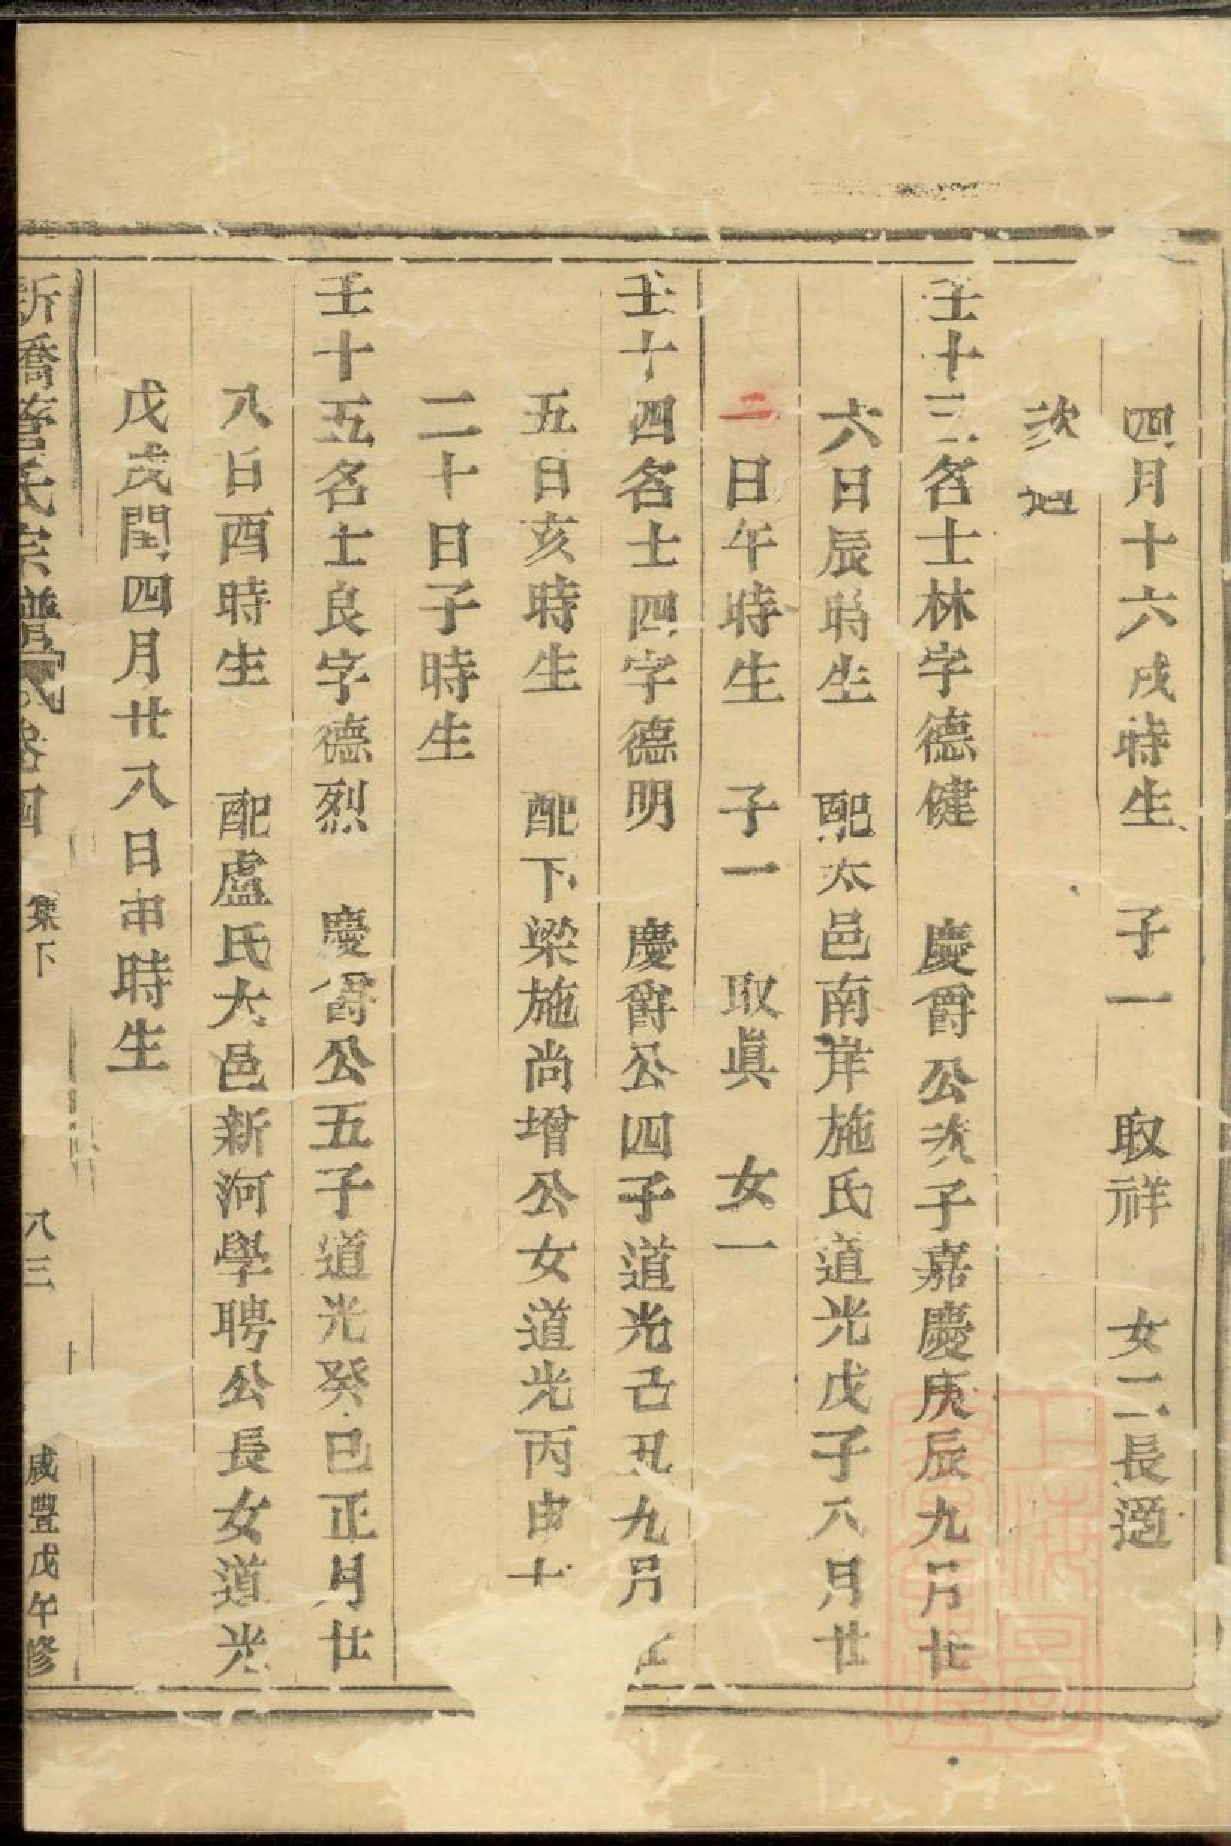 四月十六戌時生　子一　取祥　女二長適
次適
壬十三名士林字德健　慶爵公次子嘉慶庚辰九月廿
六日辰時生　配太邑南岸施氏道光戊子八月廿
二日午時生　子一　取眞　女一
壬十四名士四字德明　慶爵公四子道光己丑九月
五日亥時生　配下梁施尚增公女道光丙申十
二十日子時生
壬十五名士良字德烈　慶爵公五子道光癸巳正月廿
八日酉時生　配盧氏大邑新河學聘公長女道光
戊戌閏四月廿八日申時生
新橋管氏宗譜　卷四　集下　八三　咸豐戊午修